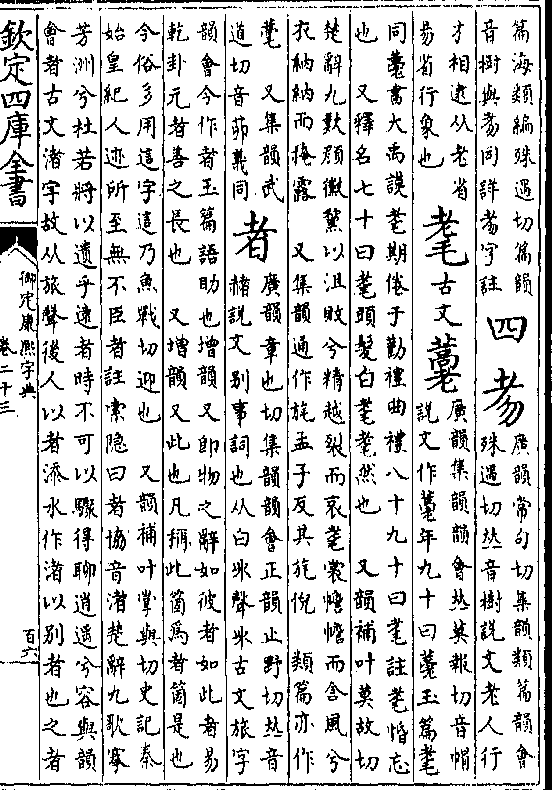 篇海類編殊遇切篇韻
音樹與䎗同詳䎗字註
四
䎗
廣韻常句切集韻類篇韻會
殊遇切𠀤音樹說文老人行
才相逮从老省
易省行象也
耄
古文
𦻲
廣韻集韻韻會𠀤莫報切音帽
說文作𦻲年九十曰𦻲玉篇耄
同𦻲書大禹謨耄期倦于勤禮曲禮八十九十曰耄註耄惛忘
也 又釋名七十曰耄頭髮白耄耄然也 又韻補叶莫故切
楚辭九歎顏黴黧以沮敗兮精越裂而衰耄裳襜襜而含風兮
衣納納而掩露 又集韻通作旄孟子反其旄倪 類篇亦作
薹 又集韻武
道切音茆義同
者
廣韻章也切集韻韻會正韻止野切𠀤音
赭說文別事詞也从白𣥐聲𣥐古文旅字
韻會今作者玉篇語助也增韻又卽物之辭如彼者如此者易
乾卦元者善之長也 又增韻又此也凡稱此箇爲者箇是也
今俗多用這字這乃魚戰切迎也 又韻補叶掌與切史記秦
始皇紀人迹所至無不臣者註索隱曰者協音渚楚辭九歌搴
芳洲兮杜若將以遺乎遠者時不可以驟得聊逍遥兮容與韻
會者古文渚字故从旅聲後人以者添水作渚以別者也之者
欽定四庫全書
御定康熙字典
卷二十三
百六